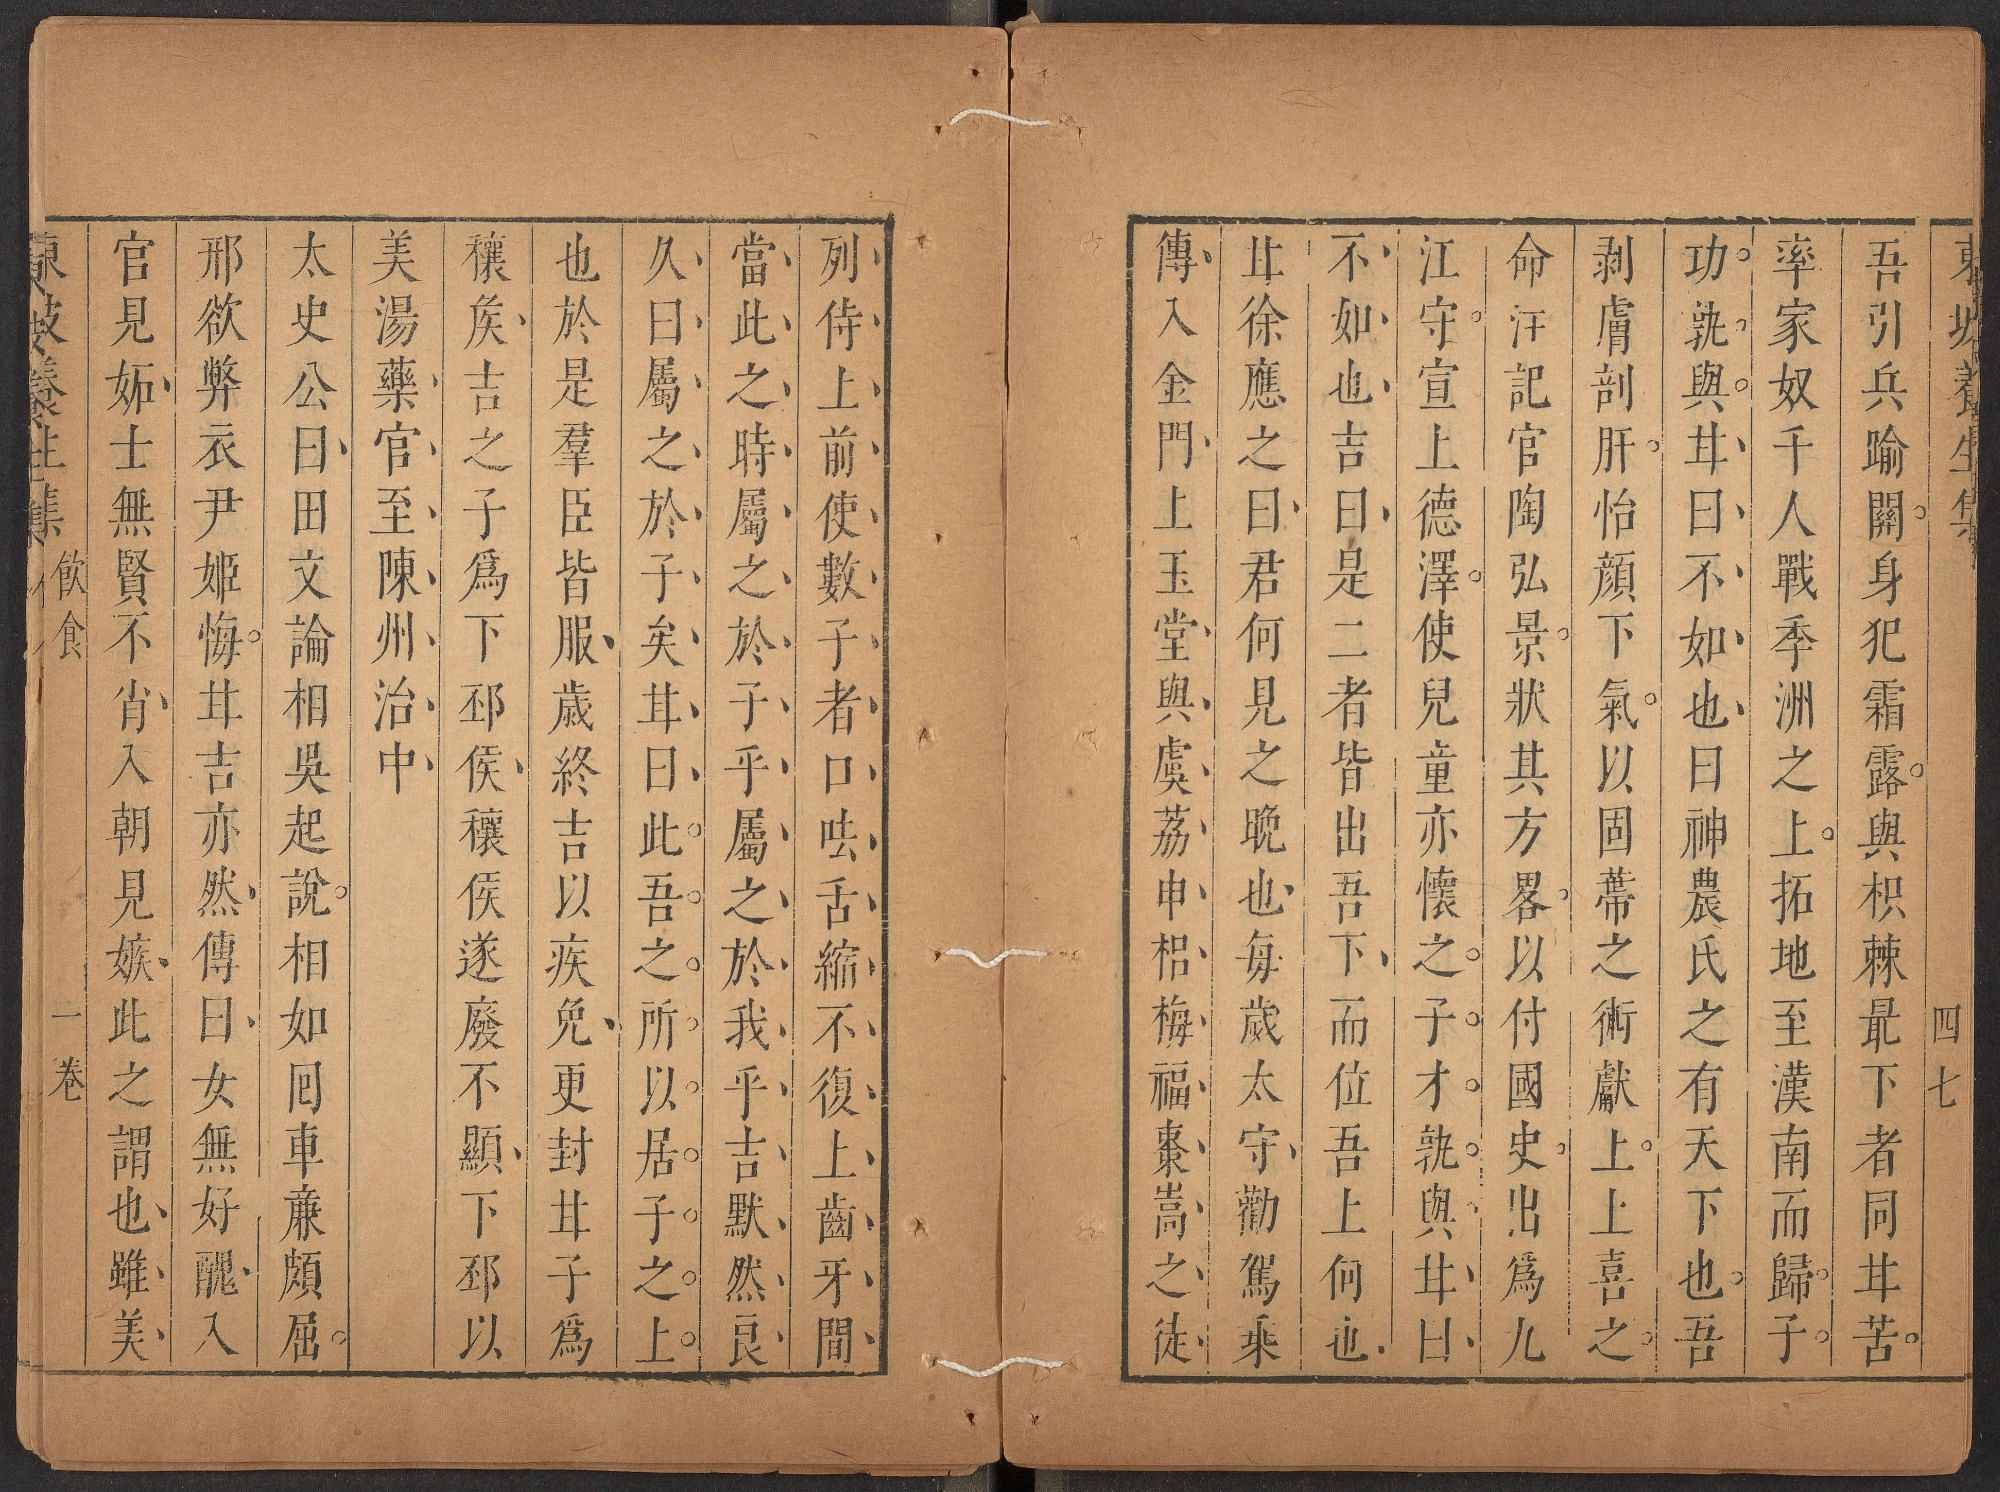 東坡養生集
四七
吾引兵踰關身犯霜露與枳棘最下者同甘苦
率家奴千人戰季洲之上拓地至漢南而歸子
功孰與甘曰不如也曰神農氏之有天下也吾
剥膚剖肝怡顔下氣以固蔕之術獻上上喜之
命注記官陶弘景狀其方畧以付國史出爲九
江守宣上德澤使兒童亦懷之子才孰與甘曰
不如也吉曰是二者皆出吾下而位吾上何也
甘徐應之曰君何見之晩也每歲太守勸駕乘
傳入金門上玉堂與虞荔申梠梅福棗嵩之徒
列侍上前使數子者口呿舌縮不復上齒牙間
當此之時屬之於子乎屬之於我乎吉默然良
久曰屬之於子矣甘曰此吾之所以居子之上
也於是羣臣皆服歲終吉以疾免更封甘子爲
穰矦吉之子爲下邳侯穰侯遂廢不顯下邳以
美湯藥官至陳州治中
太史公曰田文論相吳起說相如囘車廉頗屈
邢欲弊衣尹姬悔甘吉亦然傳曰女無好醜入
官見妬士無賢不肖入朝見嫉此之謂也雖美
東坡養生集
飲食
一卷